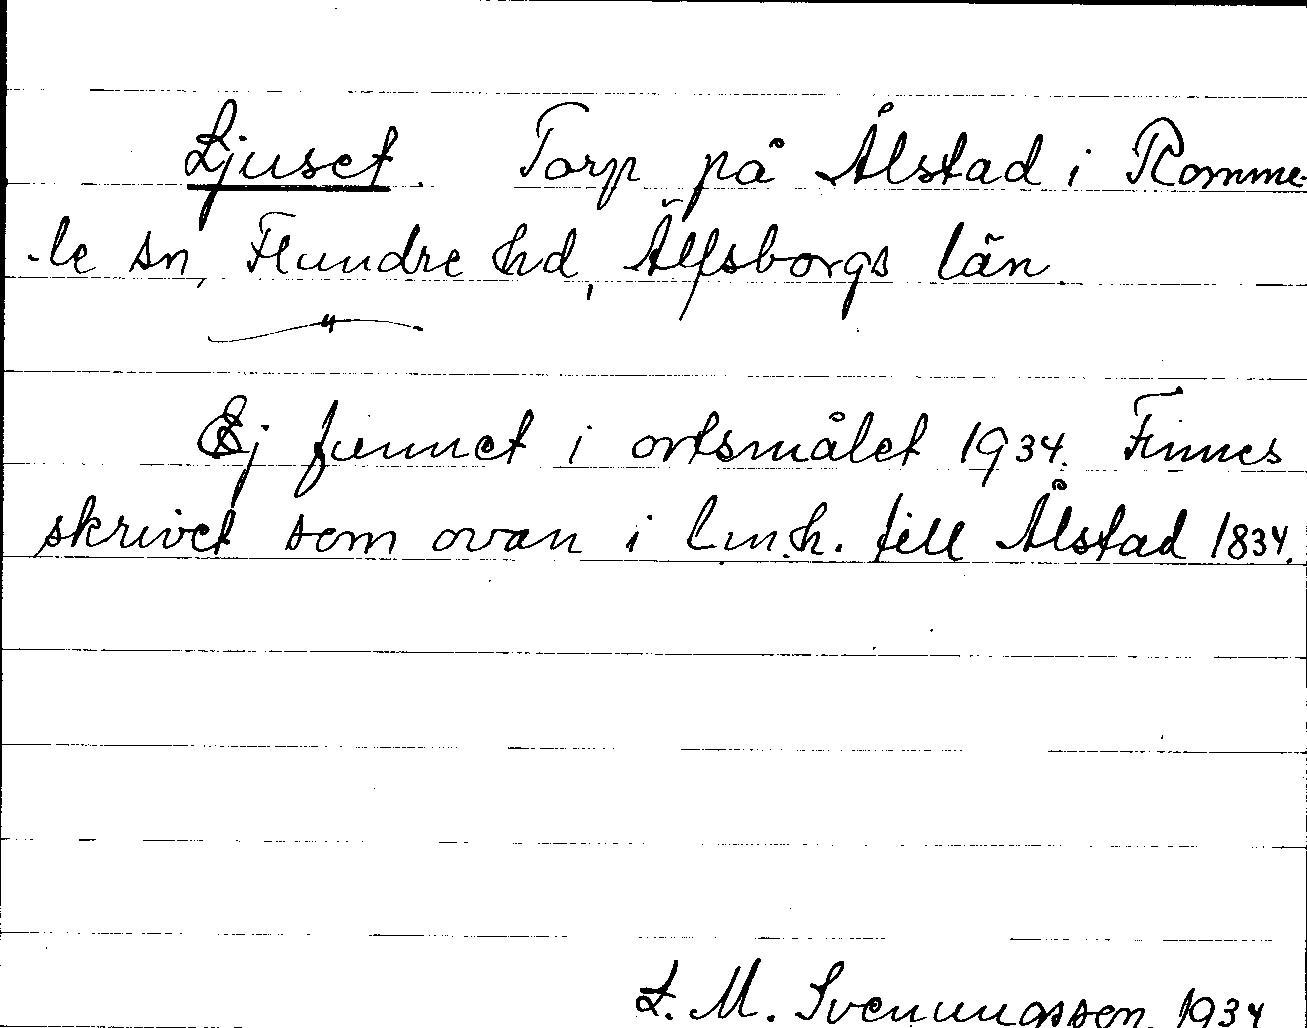 Ljuset. Torp på Ålstad i Romme-
-le sn, Flundre hd, Älfsborgs län.
"
Ej funnet i ortsmålet 1934. Finnes
skrivet som ovan i l.m.h. till Ålstad 1834.
L. M. Svenungsson 1934